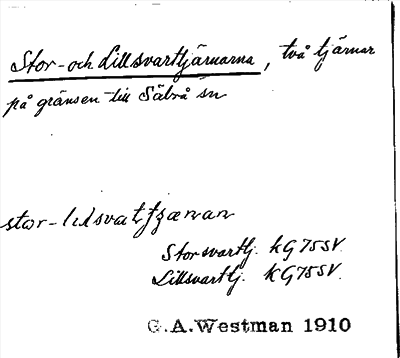 Stor- och Lillsvarttjärnarna, två tjärnar
på gränsen till Säbrå sn
stor-lilsvatţjænan
Storsvarttj. KG75SV.
Lillsvarttj. KG75SV.
G.A.Westman 1910